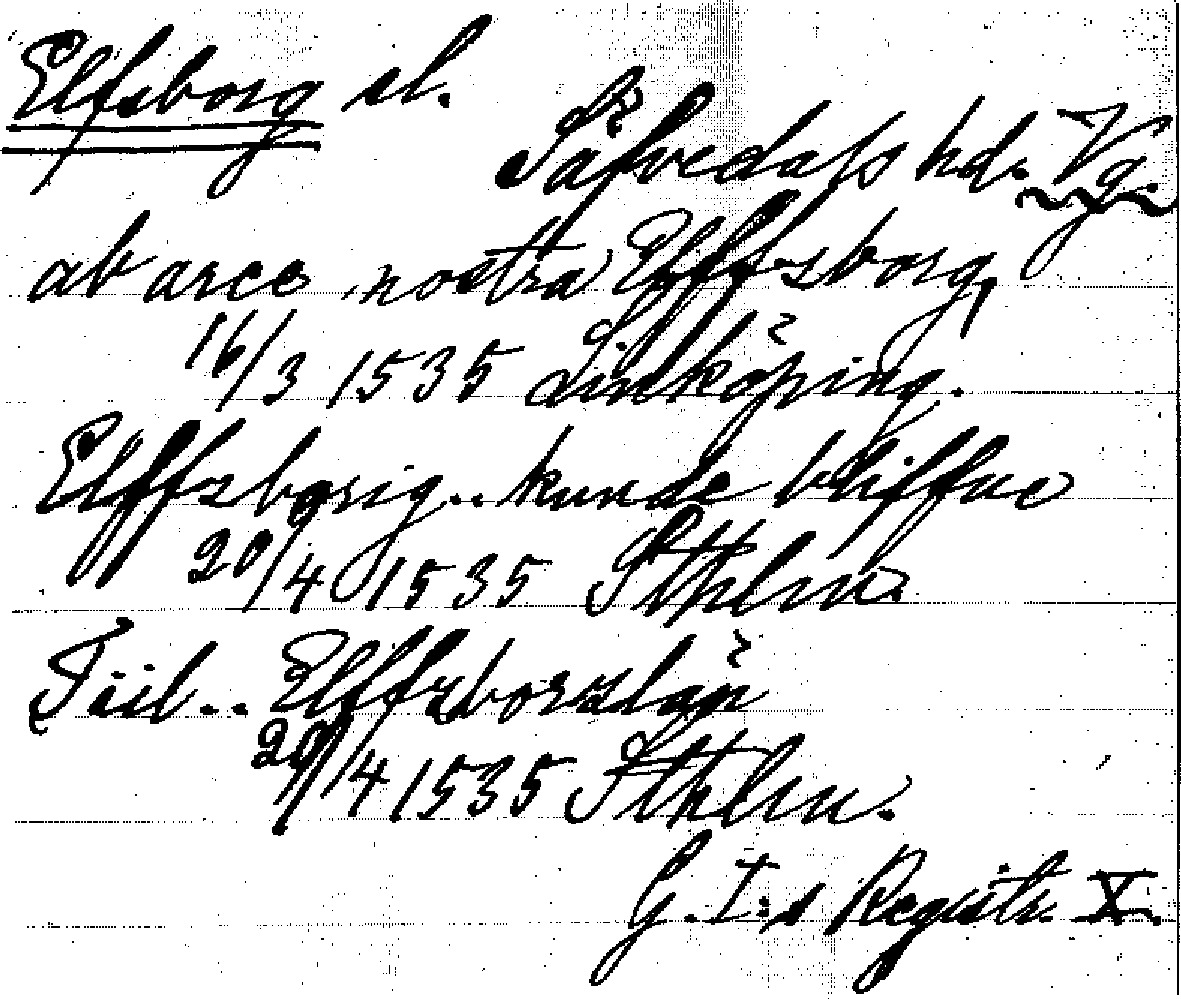 Elfsborg sl.
Säfvedals hd. Vg.
ab arce nostra Elffsborg,
16/3 1535 Linköping.
Elffsborig.. kunde bliffue
20/4 1535 Sthlm.
Tiil.. Elffzborzlän
20/4 1535 Sthlm.
G. I:s Registr. X.